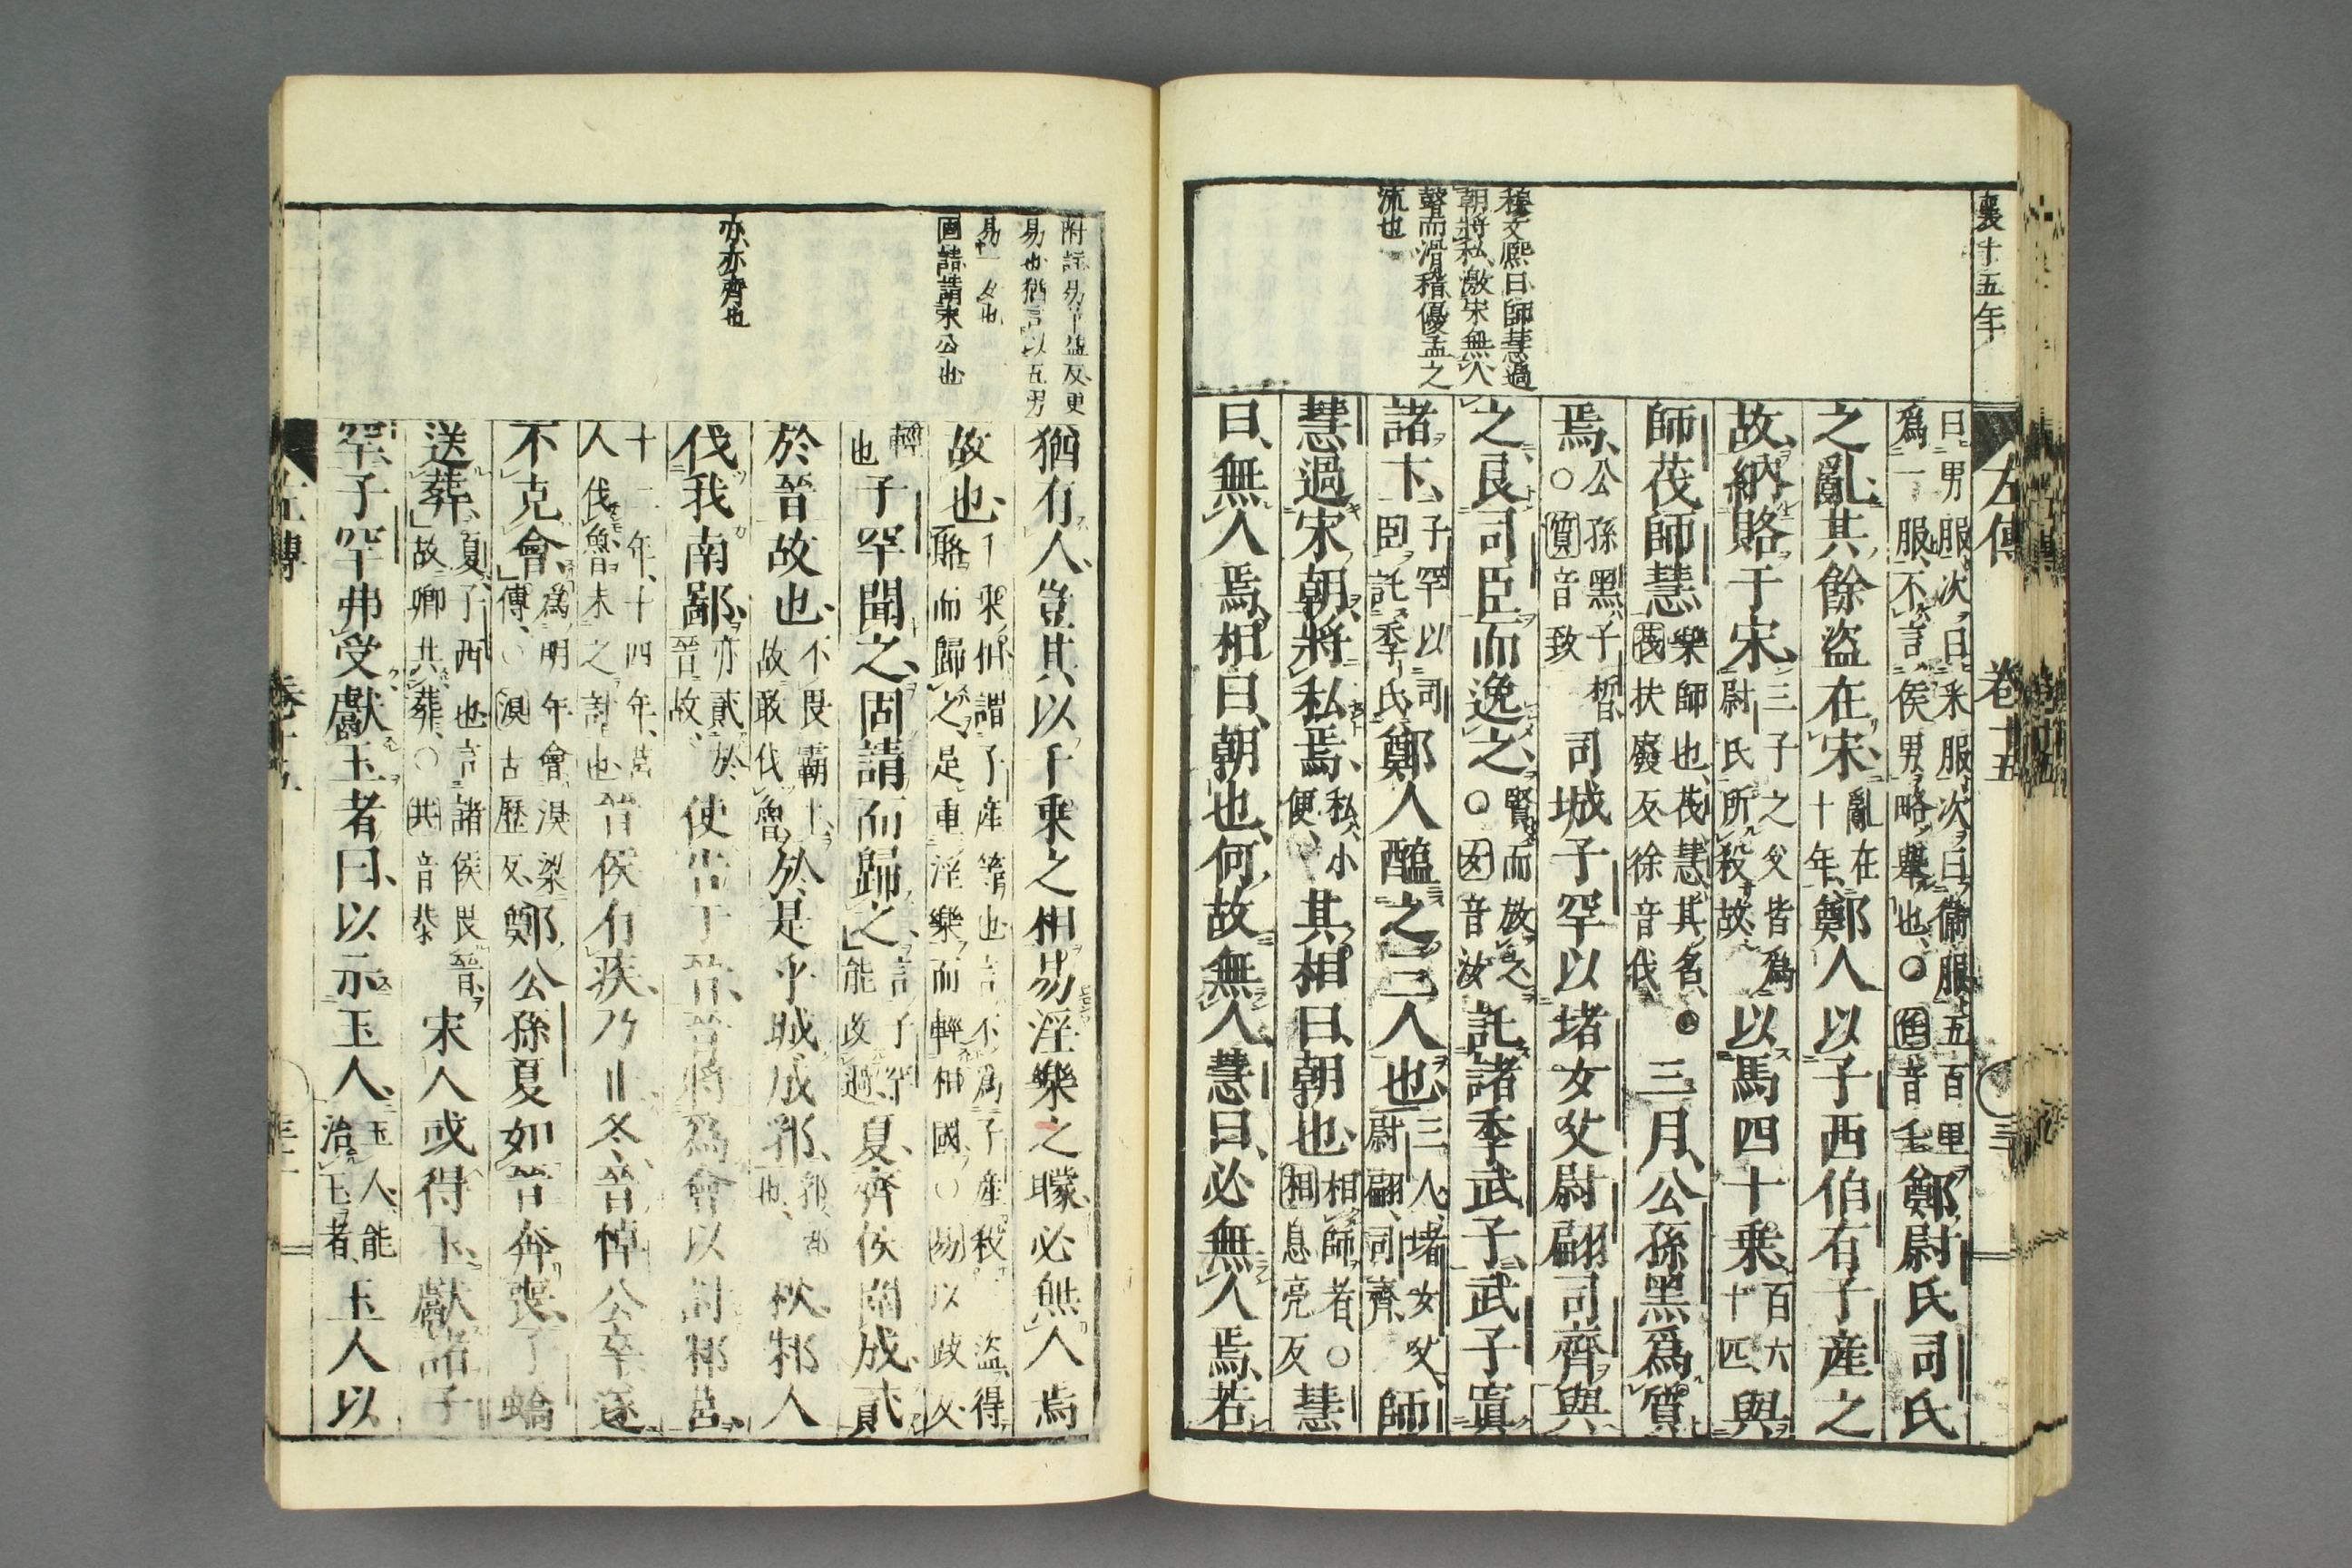 襄十五年
左傳 卷十五
穆文熙曰師慧過
朝將私激宋無人
聲而滑稽優孟之
流也
曰男服次曰采服次曰衞服五百里
爲一服不言侯男略擧也○任音壬
鄭尉氏司氏
之亂其餘盜在宋亂在十年鄭人以子西伯有子產之
故納賂于宋三子之父皆爲尉氏所殺故以馬四十乘百六十匹與
師茷師慧樂師也茷慧其名○茷扶廢反徐音伐三月公孫黑爲質
焉公孫黑子晳○質音致司城子罕以堵女父尉翩司齊與
之良司臣而逸之賢而放之○女音汝託諸季武子武子寘
諸卞子罕以司臣託季氏鄭人醢之三人也三人堵女父尉翩司齊師
慧過宋朝將私焉私小便其相曰朝也相師者○相息亮反慧
曰無人焉相曰朝也何故無人慧曰必無人焉若
附註易羊益反更
易也猶言以五男
易一女也
固請請宋公也
亦亦齊也
猶有人豈其以千乘之相易淫樂之矇必無人焉
故也千乘相謂子產等也言不爲子產殺盜得賂而歸之是重淫樂而輕相國○易以豉反
輕也子罕聞之固請而歸之言子罕能改過夏齊侯圍成貳
於晉故也不畏霸主故敢伐魯於是乎城成郛郛郭也秋邾人
伐我南鄙亦貳於晉故使告于晉晉將爲會以討邾莒
十二年十四年莒人伐魯未之討也晉侯有疾乃止冬晉悼公卒遂
不克會爲明年會溴梁傳○溴古歷反鄭公孫夏如晉奔喪子蟜
送葬夏子西也言諸侯畏晉故卿共葬○共音恭宋人或得玉獻諸子
罕子罕弗受獻玉者曰以示玉人玉人能治玉者玉人以
左傳 卷十五